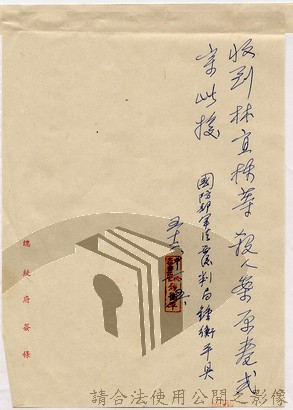 收到林宜株等殺人案原卷弐
宗此據
國防部軍法覆判局鍾衡平具
五十二
總統府簽條
請合法使用公開之影像